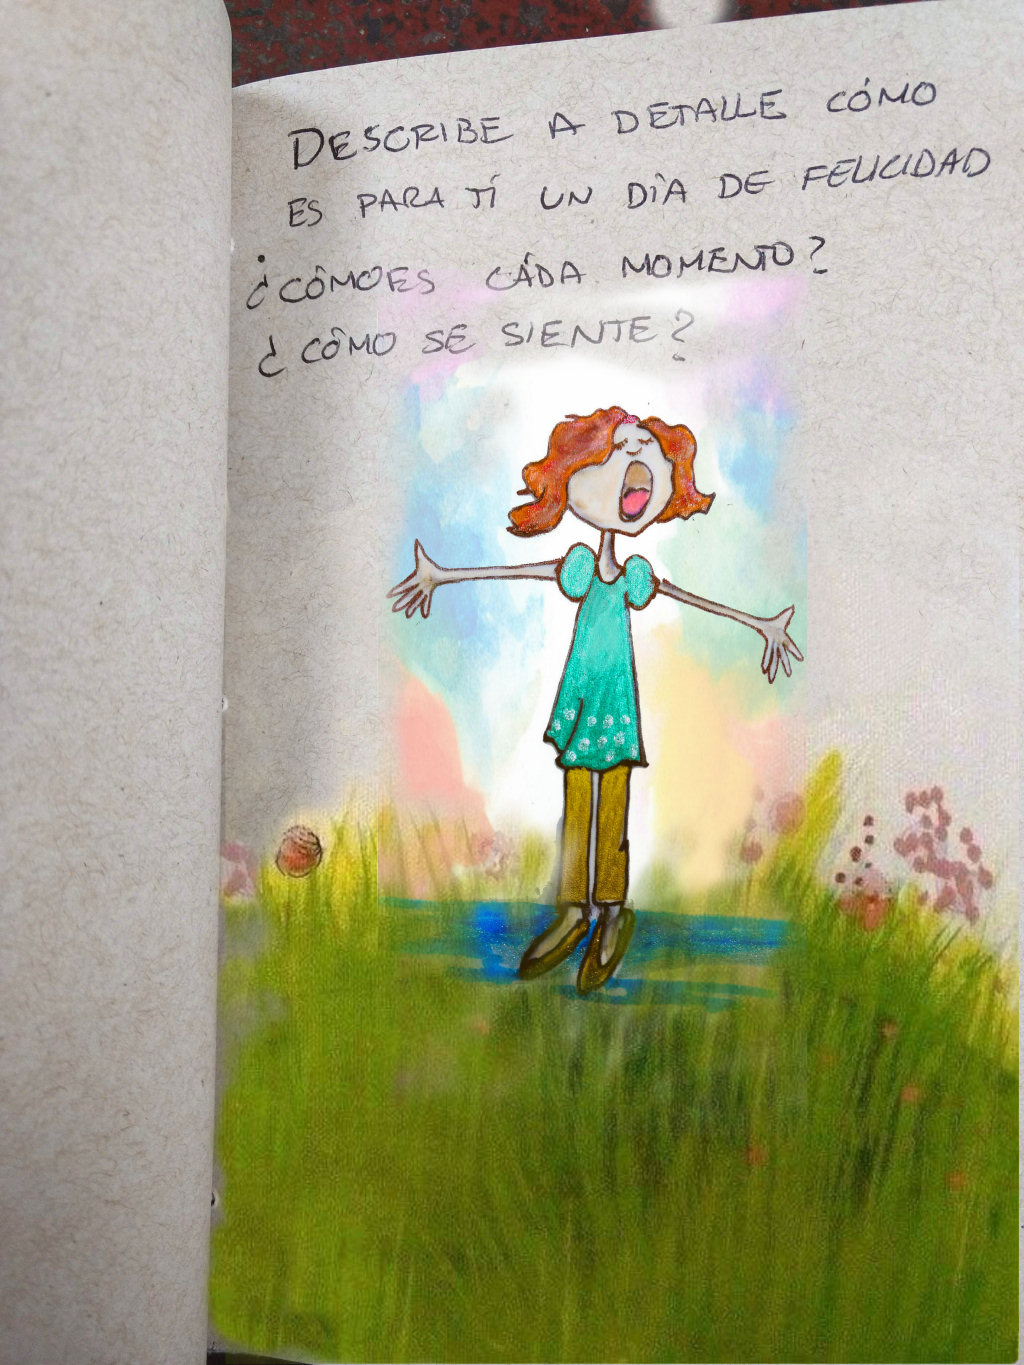 DESCRIBE A DETALLE CÓMO
ES PARA TÍ UN DÌA DE FELICIDAD
¿CÔMOES CÁDA MOMENTO?
¿CÔMO SE SIENTE?